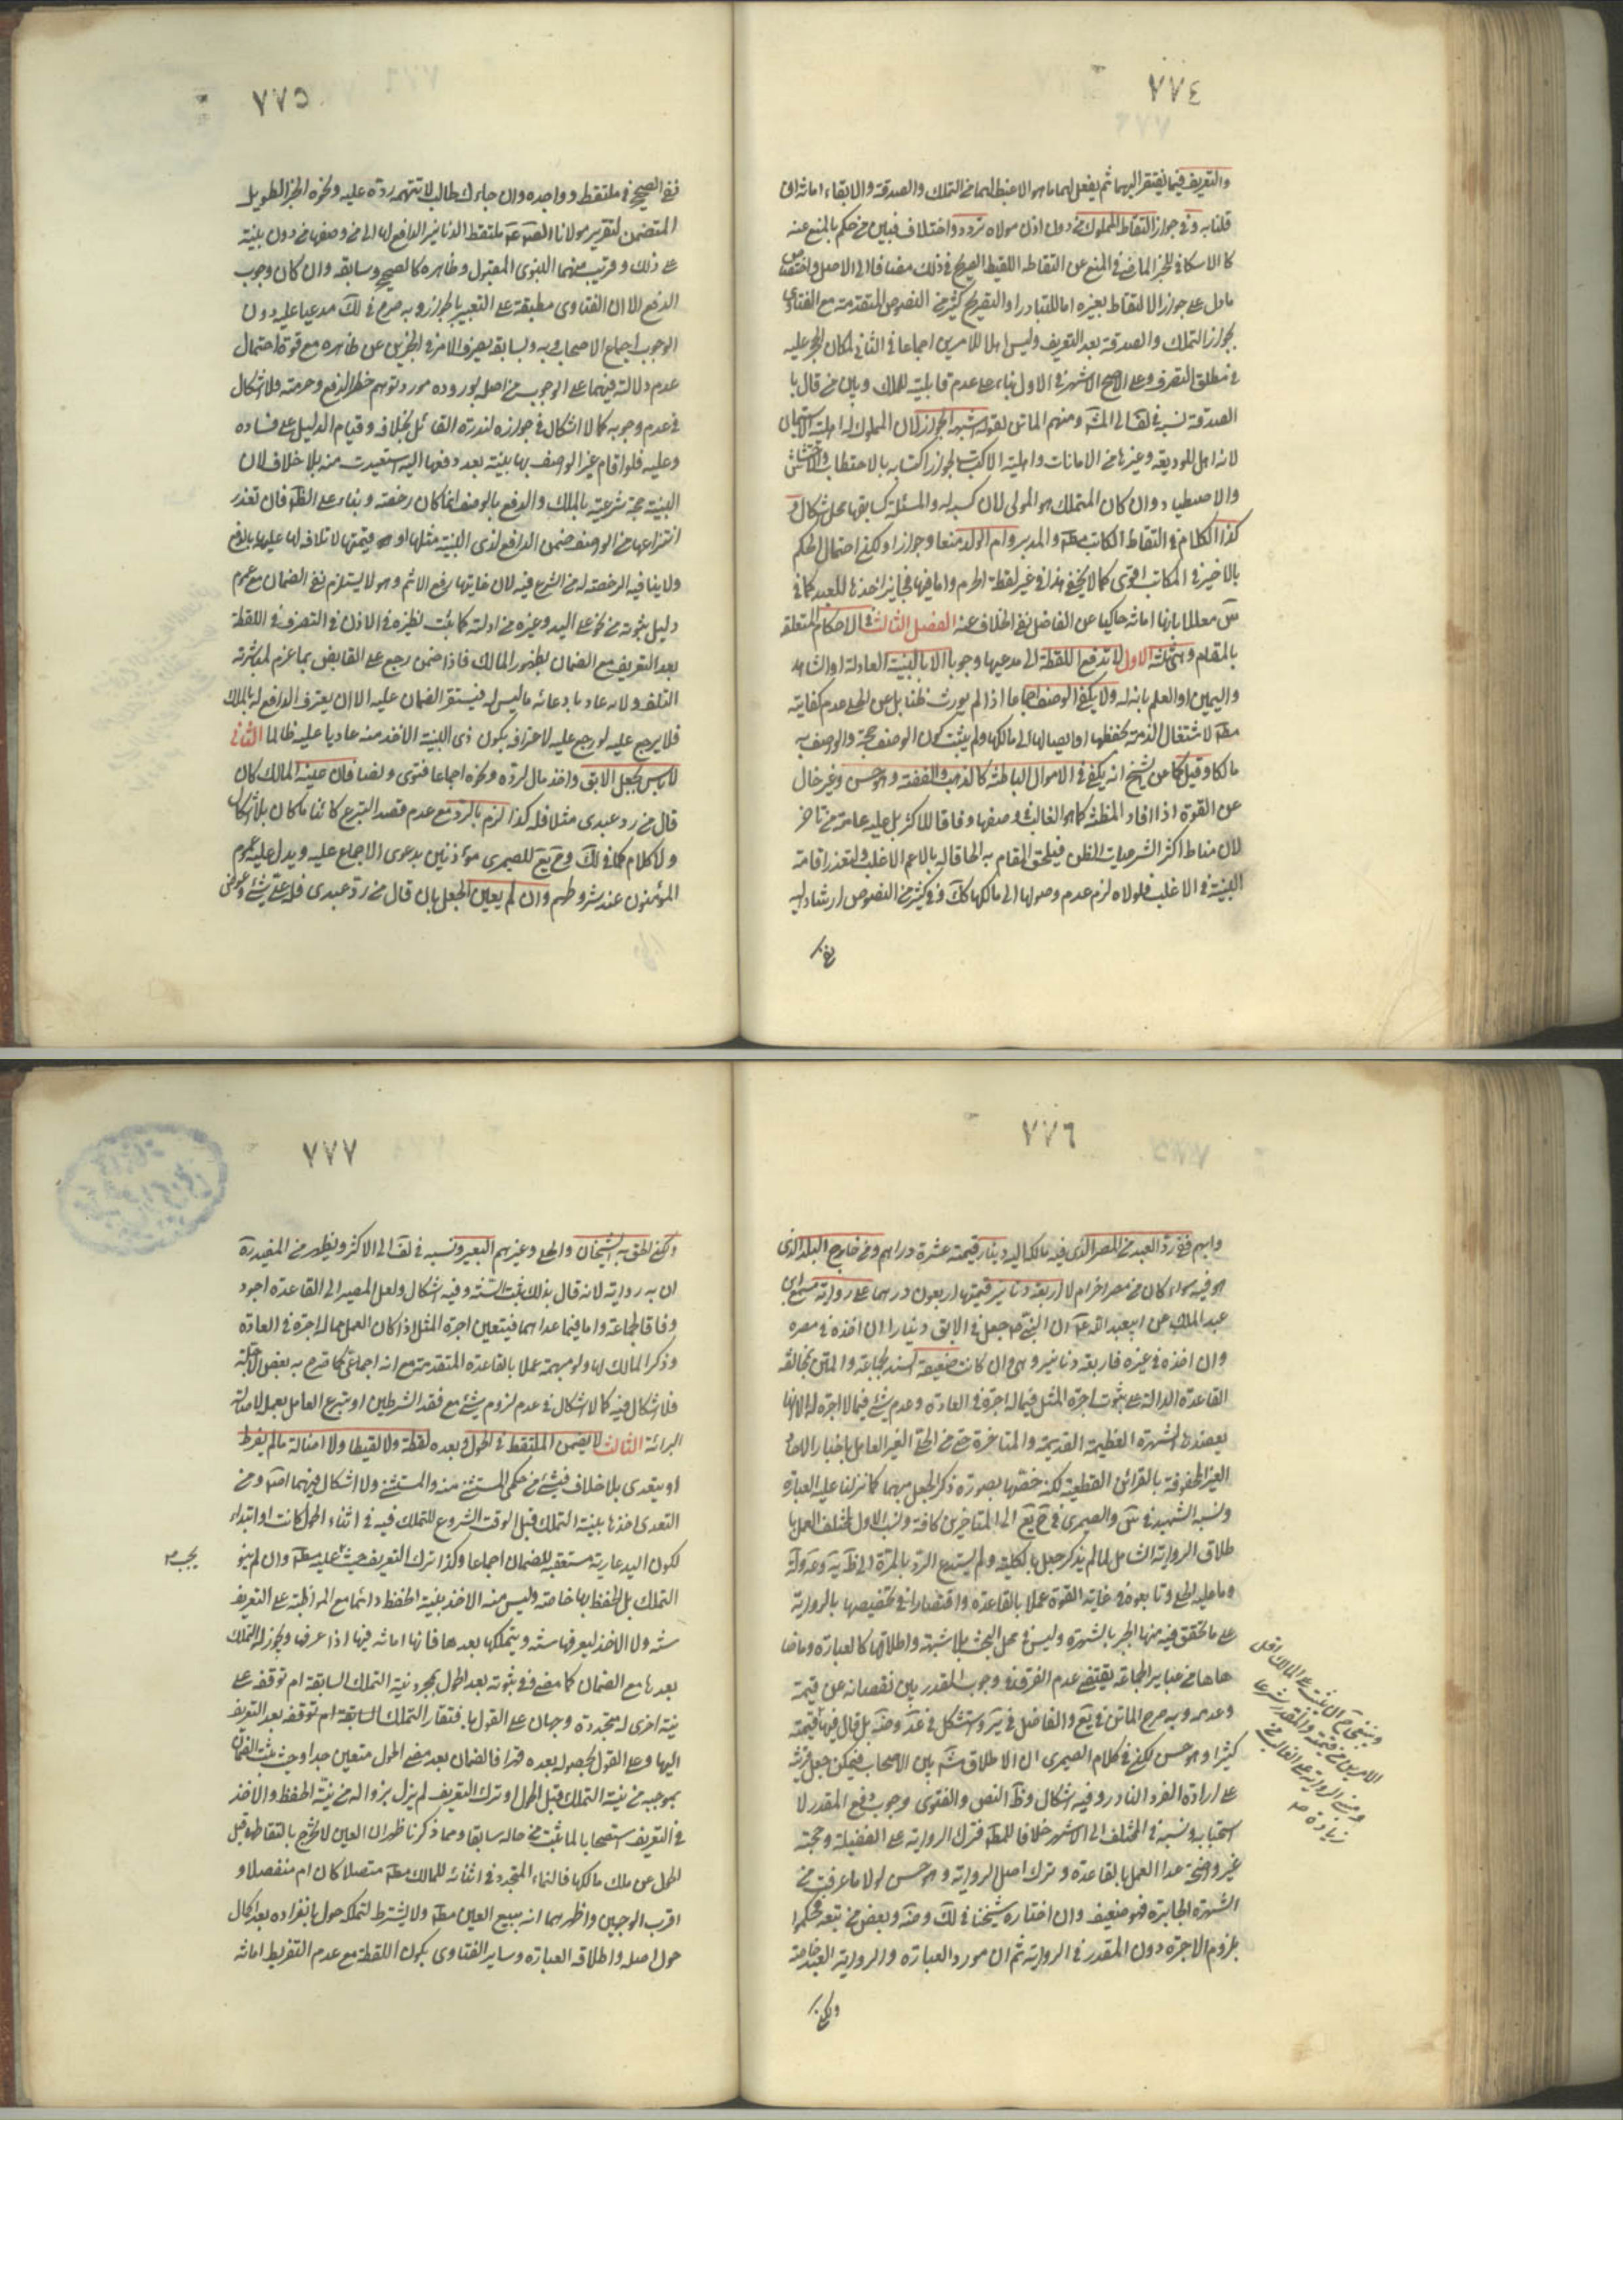 ٧٧٤
والتعريف فيما يفتقر اليهما ثم يفعل لهما ما هو الاغبط لهما من التملك والصدقة والابقاء امانة ان
قلنا به وفي جواز التقاط المملوك من دون اذن مولاه تردد واختلاف فبين من حكم بالمنع عنه
كالاسكافي للخبر الماضي في المنع عن التقاطه اللقيط الصريح في ذلك مضافا الى الاصل واختصاص
ما دل على جواز الالتقاط بغيره اما للتبادر او التصريح كثير من النصوص المتقدمة مع الفتاوى
بجواز التملك والصدقة بعد التعريف وليس اهلا للامرين اجماعا في الثاني لمكان الحجر عليه
في مطلق التصرف وعلى الاصح الاشهر في الاول بناء على عدم قابليته للملك وبين من قال با
الصدقة نسبه في لف الى المش ومنهم الماتن لقوله اشبهه الجواز لان المملوك له اهلية الاستيمان
لانه اهل للوديعة وغيرها من الامانات واهلية الاكتساب لجواز اكتسابه بالاحتطاب والاحتشاش
والاصطياد وان كان المتملك هو المولى لان كسبه له والمسئلة كسابقها محل اشكال و
كذا الكلام في التقاط المكاتب مط والمدبر وام الولد منعا وجوازا ولكن احتمال الحكم
بالاخير في المكاتب اقوى كما لا يخفى هذا في غير لقطة الحرم واما فيها فجايز اخذها للعبد كما في
س معللا بانها امانة حاكيا عن الفاضل نفي الخلاف عنه الفصل الثالث في الاحكام المتعلقة
بالمقام وهي ثلثة الاول لا تدفع اللقطة الى مدعيها وجوبا الا بالبينة العادلة او الشاهد
واليمين او العلم بانه له ولا يكفي الوصف اجماعا اذا لم يورث ظنا بل عن الحلي عدم كفايته
مط لاشتغال الذمة بحفظها وايصالها الى مالكها ولم يثبت كون الوصف حجة والوصف به
مالكا وقيل كما عن الشيخ انه يكفي في الاموال الباطنة كالذهب والفضة وهو حسن وغير خال
عن القوة اذا افاد المظنة كما هو الغالب في وصفها وفاقا للاكثر بل عليه عامة من تاخر
لان مناط اكثر الشرعيات الظن فيلحق المقام به الحاقا له بالاعم الاغلب ولتعذر اقامة
البينة في الاغلب فلولاه لزم عدم وصولها الى مالكها كك وفي كثير من النصوص ارشاد اليه
ففي
٧٧٥
ففي الصحيح في ملتقط وواجده وان جاءك طالب لا تتهمه ردة عليه ونحوه الخبر الطويل
المتضمن لتقرير مولانا الصم ملتقط الدنانير الدافع لها الى من وصفها من دون بينة
على ذلك وقريب منهما النبوى المقبول وظاهره كالصحيح وسابقه وان كان وجوب
الدفع الا ان الفتاوى مطبقة على التعبير بالجواز وبه صرح في لك مدعيا عليه دون
الوجوب اجماع الاصحاب وبه ولسابقه يصرف الامر في الخبرين عن ظاهره مع قوة احتمال
عدم دلالة فيهما على الوجوب من اصله لوروده مورد توهم حظر الدفع وحرمته فلا اشكال
في عدم وجوبه كما لا اشكال في جوازه لندرة القائل بخلافه وقيام الدليل على فساده
وعليه فلو اقام غير الواصف بها بينة بعد دفعها اليه استعيدت منه بلا خلاف لان
البينة حجة شرعية بالملك والدفع بالوصف انما كان رخصة وبناء على الظ فان تعذر
انتزاعها من الواصف ضمن الدافع لذى البينة مثلها او قيمتها لاتلافه لها عليه بالدفع
ولا ينافيه الرخصة له من الشرع فيه لان غايتها رفع الاثم وهو لا يستلزم نفي الضمان مع عموم
دليل ثبوته من نحو على اليد وغيره من ادلته كما ثبت نظيره في الاذن في التصرف في اللقطة
بعد التعريف مع الضمان بظهور المالك فاذا ضمن رجع على القابض بما غرم لمباشرته
التلف ولانه عاد بادعائه ما ليس له فيستقر الضمان عليه الا ان يعترف الدافع له بالملك
فلا يرجع عليه لو رجع عليه لاعترافه بكون ذى البينة الاخذ منه عاديا عليه ظالما الثاني
لا باس بجعل الابق واخذ مال لرده ونحوه اجماعا فتوى ونصا فان عينه المالك كان
قال من رد عبدى مثلا فله كذا لزم بالرد مع عدم قصد التبرع كائنا ما كان بلا اشكال
ولا كلام كما في لك وح يع للصيمرى مؤذنين بدعوى الاجماع عليه ويدل عليه عموم
المؤمنون عند شروطهم وان لم يعين الجعل بان قال من رد عبدى فله على شئ وعوض
٧٧٦
وابهم ففي رد العبد من المصر الذى فيه مالكه اليه دينار قيمته عشرة دراهم ومن خارج البلد الذى
هو فيه سواء كان من مصر اخر ام لا اربعة دنانير قيمتها اربعون درهما على رواية مسمع ابن
عبد الملك عن ابيعبد الله ع ان النبي ص جعل في الابق دينارا ان اخذه في مصره
وان اخذه في غيره فاربعة دنانير وهي وان كانت ضعيفة السند بجماعة والمتن بمخالفة
القاعدة الدالة على ثبوت اجرة المثل فيما له اجرة في العادة وعدم شئ فيما لا اجرة له الا انها
يعضدها الشهرة العظيمة القديمة والمتاخرة حتى من الحلي الغير العامل باخبار الاحاد
الغير المحفوفة بالقرائن القطعية لكنه خصها بصورة ذكر الجعل مبهما كما نزلنا عليه العبارة
ونسبه الشهيد في س والصيمرى في ح يع الى المتاخرين كافة ونسب الاول للمختلف العمل با
طلاق الرواية الشامل لما لم يذكر جعل بالكلية ولم يستدع الرد بالمرة الى ظ ية و عة ولة
وما عليه الحلي وتابعوه في غاية القوة عملا بالقاعدة واقتصارا في تخصيصها بالرواية
على ما تحقق فيه منها الجبر بالشهرة وليس محل البحث بلا شبهة واطلاقها كالعبارة وما ضا
هاها من عباير الجماعة يقتضي عدم الفرق في وجوب المقدر بين نقصانه عن قيمة
وعدمه وبه صرح الماتن في يع والفاضل في ير واستشكل في عد وضه بل قال فيها قيمته
كثيرا وهو حسن لكن في كلام الصيمرى ان الاطلاق مش بين الاصحاب فيمكن جعل قرينة
على ارادة الفرد النادر وفيه اشكال وظ النص والفتوى وجوب دفع المقدر لا
استحبابه ونسبه في المختلف الى الاشهر خلافا للمط فنزل الرواية على الفضيلة وحجته
غير واضحة عدا العمل بالقاعدة وترك اصل الرواية وهو حسن لولا ما عرفت من
الشهرة الجابرة فهو ضعيف وان اختاره شيخنا في لك وضه وبعض من تبعه فحكموا
بلزوم الاجرة دون المقدر في الرواية ثم ان مورد العبارة والرواية العبد خاصة
ولكن
٧٧٧
ولكن الحق به الشيخان والحلي وغيرهم البعير ونسبه في لف الى الاكثر ويظهر من المفيد رة
ان به رواية لانه قال بذلك ثبت السنة وفيه اشكال ولعل المصير الى القاعدة اجود
وفاقا لجماعة واما فيما عداهما فيتعين اجرة المثل اذا كان العمل مما له اجرة في العادة
وذكر المالك لها ولو مبهمة عملا بالقاعدة المتقدمة مع انه اجماعي كما صرح به بعض الاجلة
فلا اشكال فيه كما لا اشكال في عدم لزوم شئ مع فقد الشرطين او تبرع العامل بعمله لاصالة
البرائة الثالث لا يضمن الملتقط في الحول وبعده لقطة ولا لقيطا ولا امثاله ما لم يفرط
او يتعدى بلا خلاف في شئ من حكمي المستثنى منه والمستثنى ولا اشكال فيهما اصلا ومن
التعدى اخذها بنية التملك قبل الوقت المشروع للتملك فيه في اثناء الحول كانت او ابتداء
لكون اليد عارية مستعقبه للضمان اجماعا وكذا ترك التعريف حيث عليه مط وان لم ينو
يجب
التملك بل الحفظ بها خاصة وليس منه الاخذ بنية الحفظ دائما مع المواظبة على التعريف
سنة ولا الاخذ ليعرفها سنة ويتملكها بعدها فانها امانة فيها اذا عرفها ويجوز له التملك
بعدها مع الضمان كما مضى وفي ثبوته بعد الحول بمجرد نية التملك السابقة ام توقفه على
نية اخرى له متجددة وجهان على القول بافتقار التملك السابقة ام توقفه بعد التعريف
اليها وعلى القول بحصوله بعده قهرا فالضمان بعد مضي الحول متعين جدا وحيث يثبت الضمان
بموجبه من نية التملك قبل الحول او ترك التعريف لم يزل بزواله من نية الحفظ والاخذ
في التعريف استصحابا لما ثبت من حاله سابقا ومما ذكرنا ظهر ان العين لا تخرج بالتقاطها قبل
الحول عن ملك مالكها فالنماء المتجدد في اثنائه للمالك مط متصلا كان ام منفصلا و
اقرب الوجهين واظهرهما انه يتبع العين مط ولا يشترط لتملكه حول بانفراده بعد اكمال
حول اصله واطلاقه العبارة وساير الفتاوى بكون اللقطة مع عدم التفريط امانة